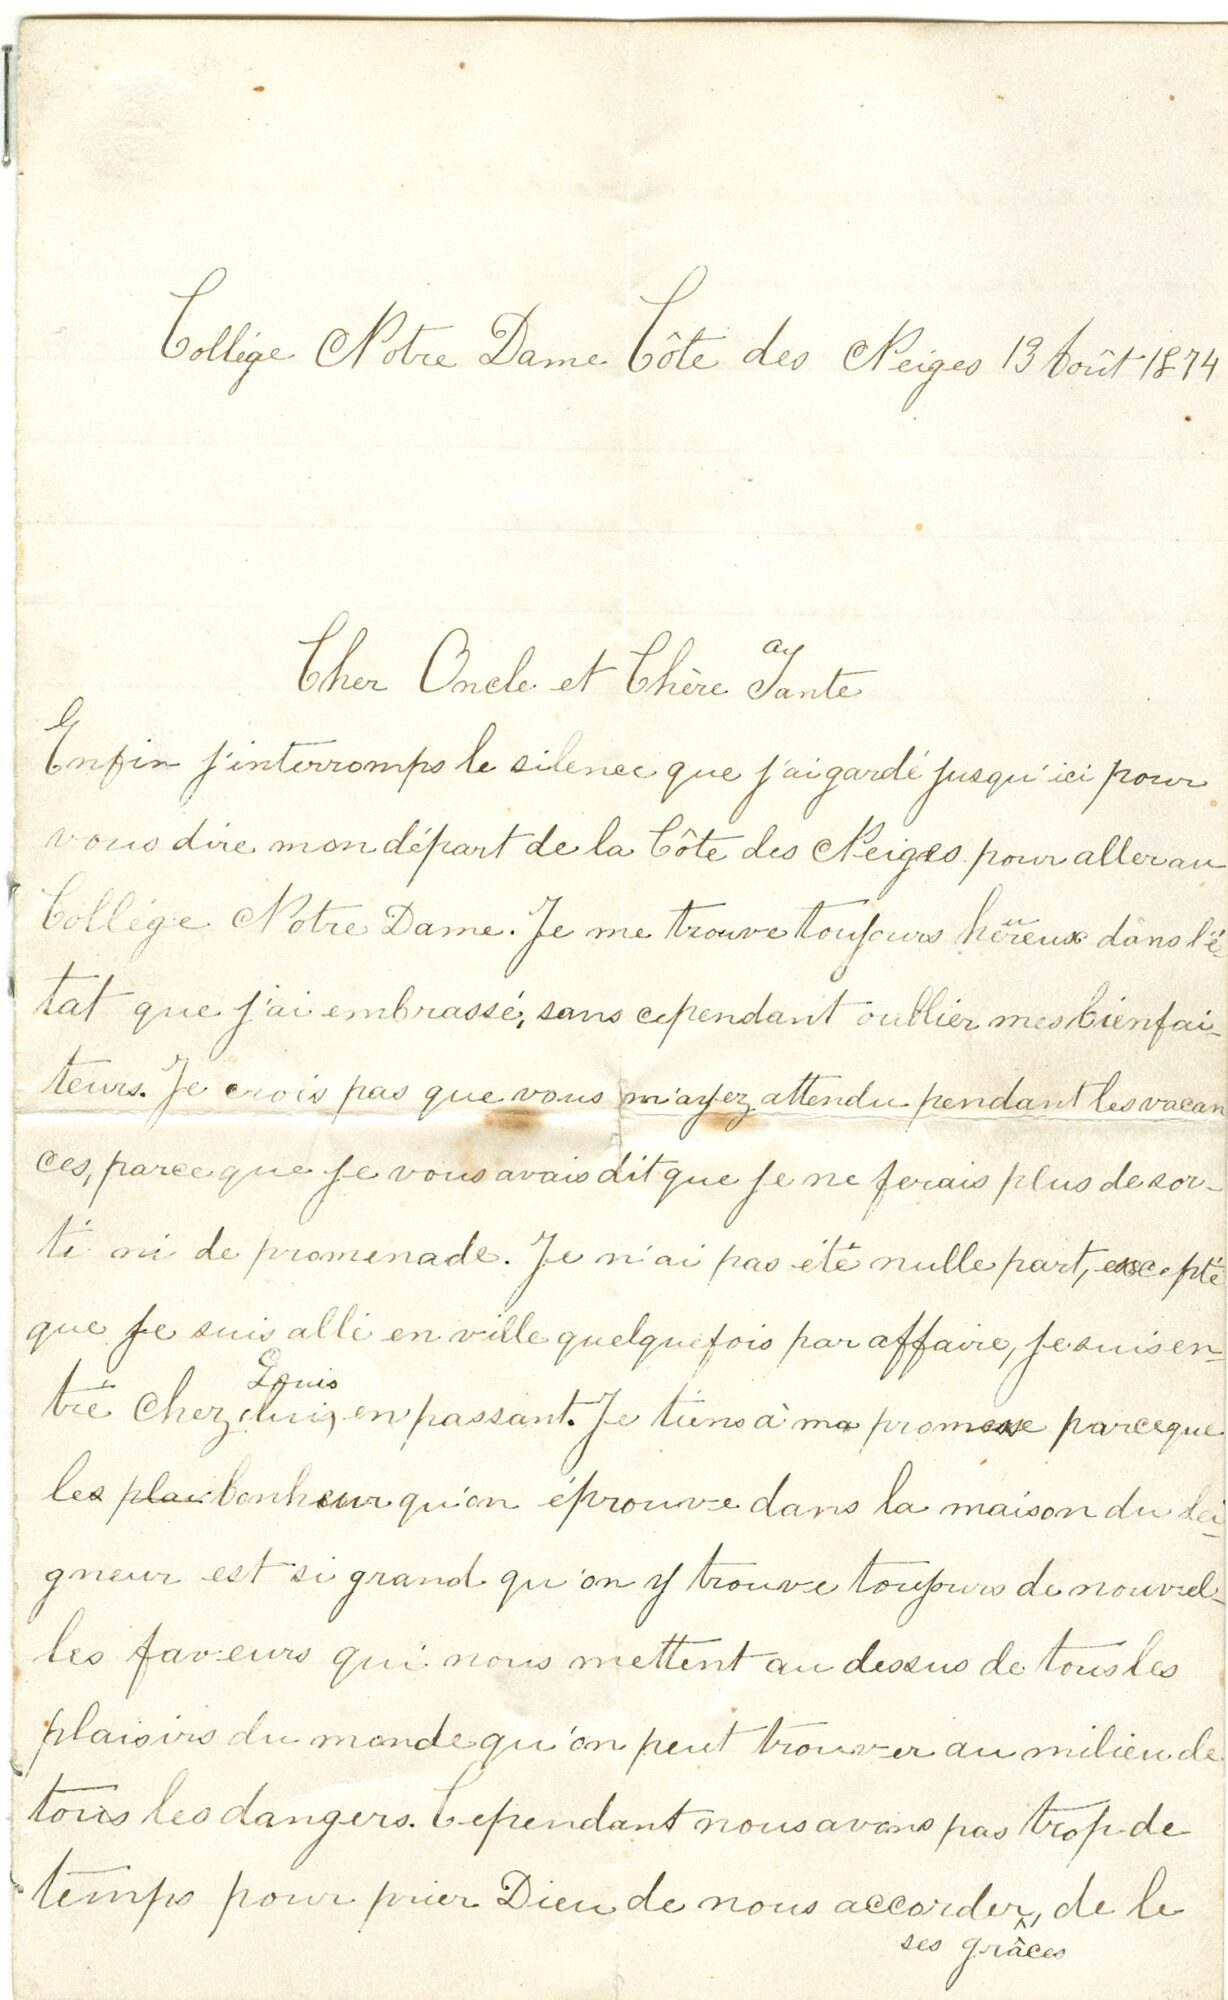 Collége Notre Dame Côte des Neiges 13 Août 1874
Cher Oncle et Chère Tante
Enfin j'interromps le silence que j'ai gardé jusqu'ici pour
vous dire mon départ de la Côte des Neiges pour aller au
Collége Notre Dame. Je me trouve toujours hëreux dans l'é-
tat que j'ai embrassé, sans cependant oublier mes bienfai-
teurs. Je crois pas que vous m'ayez attendu pendant les vacan
ces, parce que je vous avais dit que je ne ferais plus de sor-
ti ni de promenade. Je n'ai pas été nulle part, excepté
que je suis allé en ville quelquefois par affaire, je suis en-
Louis
tré chez lui, en passant. Je tiens à ma promesse parceque
les plai bonheur qu'on éprouve dans la maison du Sei-
gneur est si grand qu'on y trouve toujours de nouvel-
les faveurs qui nous mettent au dessus de tous les
plaisirs du monde qu'on peut trouver au milieu de
tous les dangers. Cependant nous avons pas trop de
temps pour prier Dieu de nous accorder, de le
ses grâces